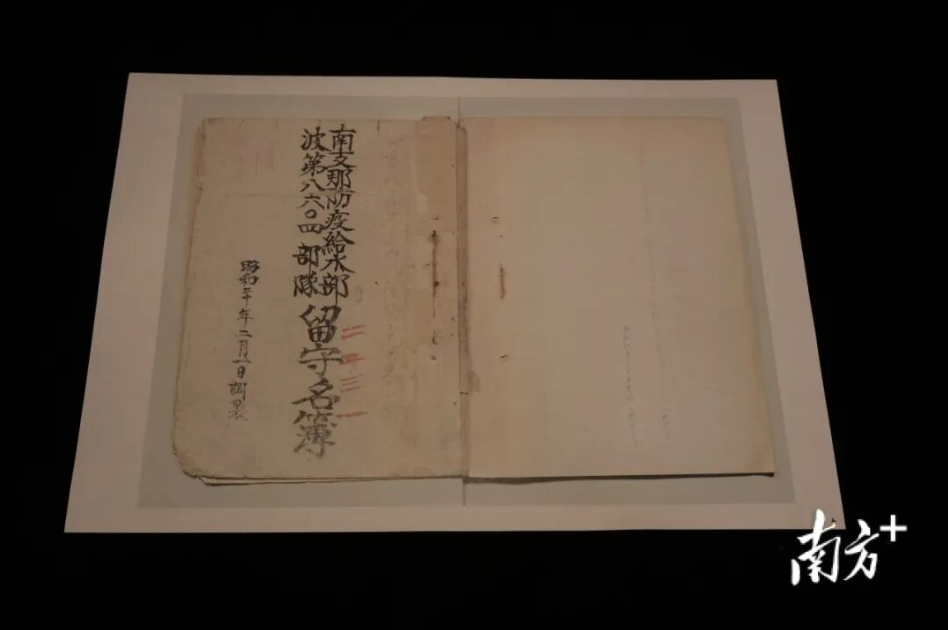 南支那防疫給水部
波第八六〇四部隊
留守名簿
昭和二十年二月一日調製
南方+